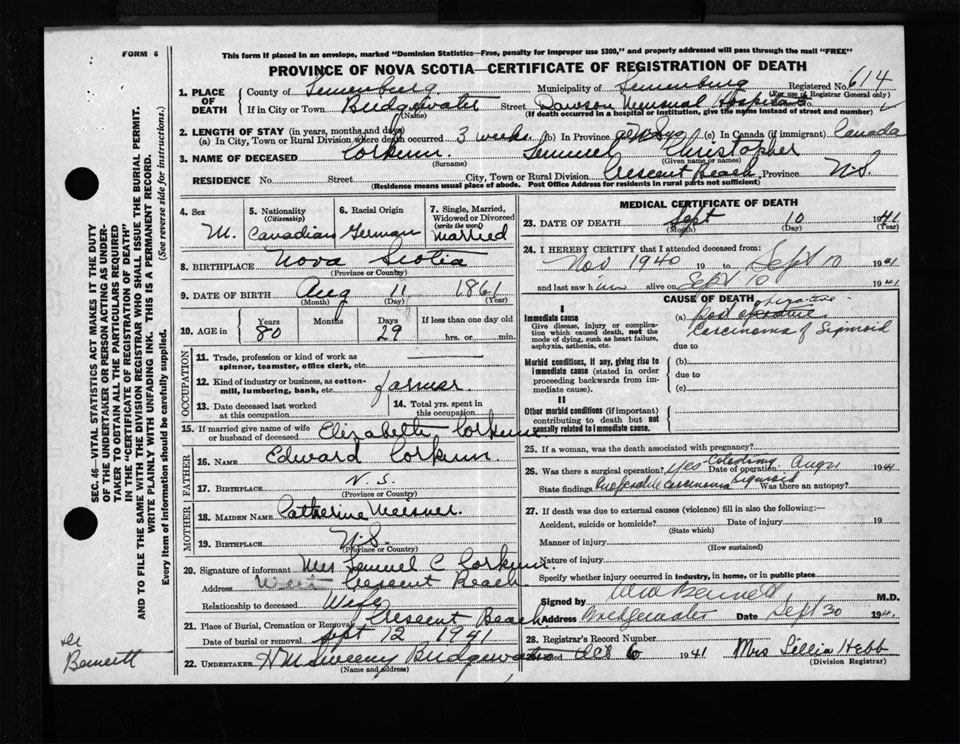 FORM 6
This form if placed in an envelope, marked "Dominion Statistics—Free, penalty for improper use $300," and properly addressed will pass through the mail "FREE"
PROVINCE OF NOVA SCOTIA—CERTIFICATE OF REGISTRATION OF DEATH
SEC. 46—VITAL STATISTICS ACT MAKES IT THE DUTY
OF THE UNDERTAKER OR PERSON ACTING AS UNDER-
TAKER TO OBTAIN ALL THE PARTICULARS REQUIRED
IN THE "CERTIFICATE OF REGISTRATION OF DEATH"
AND TO FILE THE SAME WITH THE DIVISION REGISTRAR WHO SHALL ISSUE THE BURIAL PERMIT.
WRITE PLAINLY WITH UNFADING INK. THIS IS A PERMANENT RECORD.
Every item of information should be carefully supplied. (See reverse side for instructions.)
Dr
Bennett
1. PLACE OF DEATH
County of Lunenburg Municipality of Lunenburg Registered No. 614
(For use of Registrar General only)
If in City or Town Bridgewater Street Dawson Memorial Hospital No.
(Name) (If death occurred in a hospital or institution, give the name instead of street and number)
2. LENGTH OF STAY (in years, months and days)
(a) In City, Town or Rural Division where death occurred 3 weeks (b) In Province (c) In Canada (if immigrant) Canada
3. NAME OF DECEASED Corkum Lemuel Christopher
(Surname) (Given name or names)
RESIDENCE No. Street City, Town or Rural Division Crescent Beach Province N.S.
(Residence means usual place of abode. Post Office Address for residents in rural parts not sufficient)
4. Sex M.
5. Nationality (Citizenship) Canadian
6. Racial Origin German
7. Single, Married, Widowed or Divorced (write the word) Married
8. BIRTHPLACE Nova Scotia
(Province or Country)
9. DATE OF BIRTH Aug 11 1861
(Month) (Day) (Year)
10. AGE in Years 80 Months Days 29 If less than one day old hrs. or min.
OCCUPATION
11. Trade, profession or kind of work as spinner, teamster, office clerk, etc.
12. Kind of industry or business, as cotton-mill, lumbering, bank, etc. farmer
13. Date deceased last worked at this occupation
14. Total yrs. spent in this occupation
15. If married give name of wife or husband of deceased Elizabeth Corkum
FATHER
16. NAME Edward Corkum
17. BIRTHPLACE N.S.
(Province or Country)
MOTHER
18. MAIDEN NAME Catherine Meisner
19. BIRTHPLACE N.S.
(Province or Country)
20. Signature of informant Mrs Lemuel C Corkum
Address West Crescent Beach
Relationship to deceased Wife
21. Place of Burial, Cremation or Removal Crescent Beach
Date of burial or removal Sept 12 1941
22. UNDERTAKER Bridgewater
(Name and address)
MEDICAL CERTIFICATE OF DEATH
23. DATE OF DEATH Sept 10 1941
(Month) (Day) (Year)
24. I HEREBY CERTIFY that I attended deceased from:
Nov 1940 19 to Sept 10 1941
and last saw him alive on Sept 10 1941
CAUSE OF DEATH
I
Immediate cause
Give disease, injury or complication which caused death, not the mode of dying, such as heart failure, asphyxia, asthenia, etc.
(a) Post operative
Carcinoma of Sigmoid
due to
Morbid conditions, if any, giving rise to immediate cause (stated in order proceeding backwards from immediate cause).
(b)
due to
(c)
II
Other morbid conditions (if important) contributing to death but not causally related to immediate cause.
25. If a woman, was the death associated with pregnancy?
26. Was there a surgical operation? Yes Date of operation Aug 1941
State findings Inoperable Carcinoma Sigmoid Was there an autopsy?
27. If death was due to external causes (violence) fill in also the following:—
Accident, suicide or homicide? Date of injury 19
(State which)
Manner of injury
(How sustained)
Nature of injury
Specify whether injury occurred in industry, in home, or in public place
Signed by Bennett M.D.
Address Bridgewater Date Sept 30 194
28. Registrar's Record Number
Oct 6 1941 Mrs Lillia Hebb
(Division Registrar)